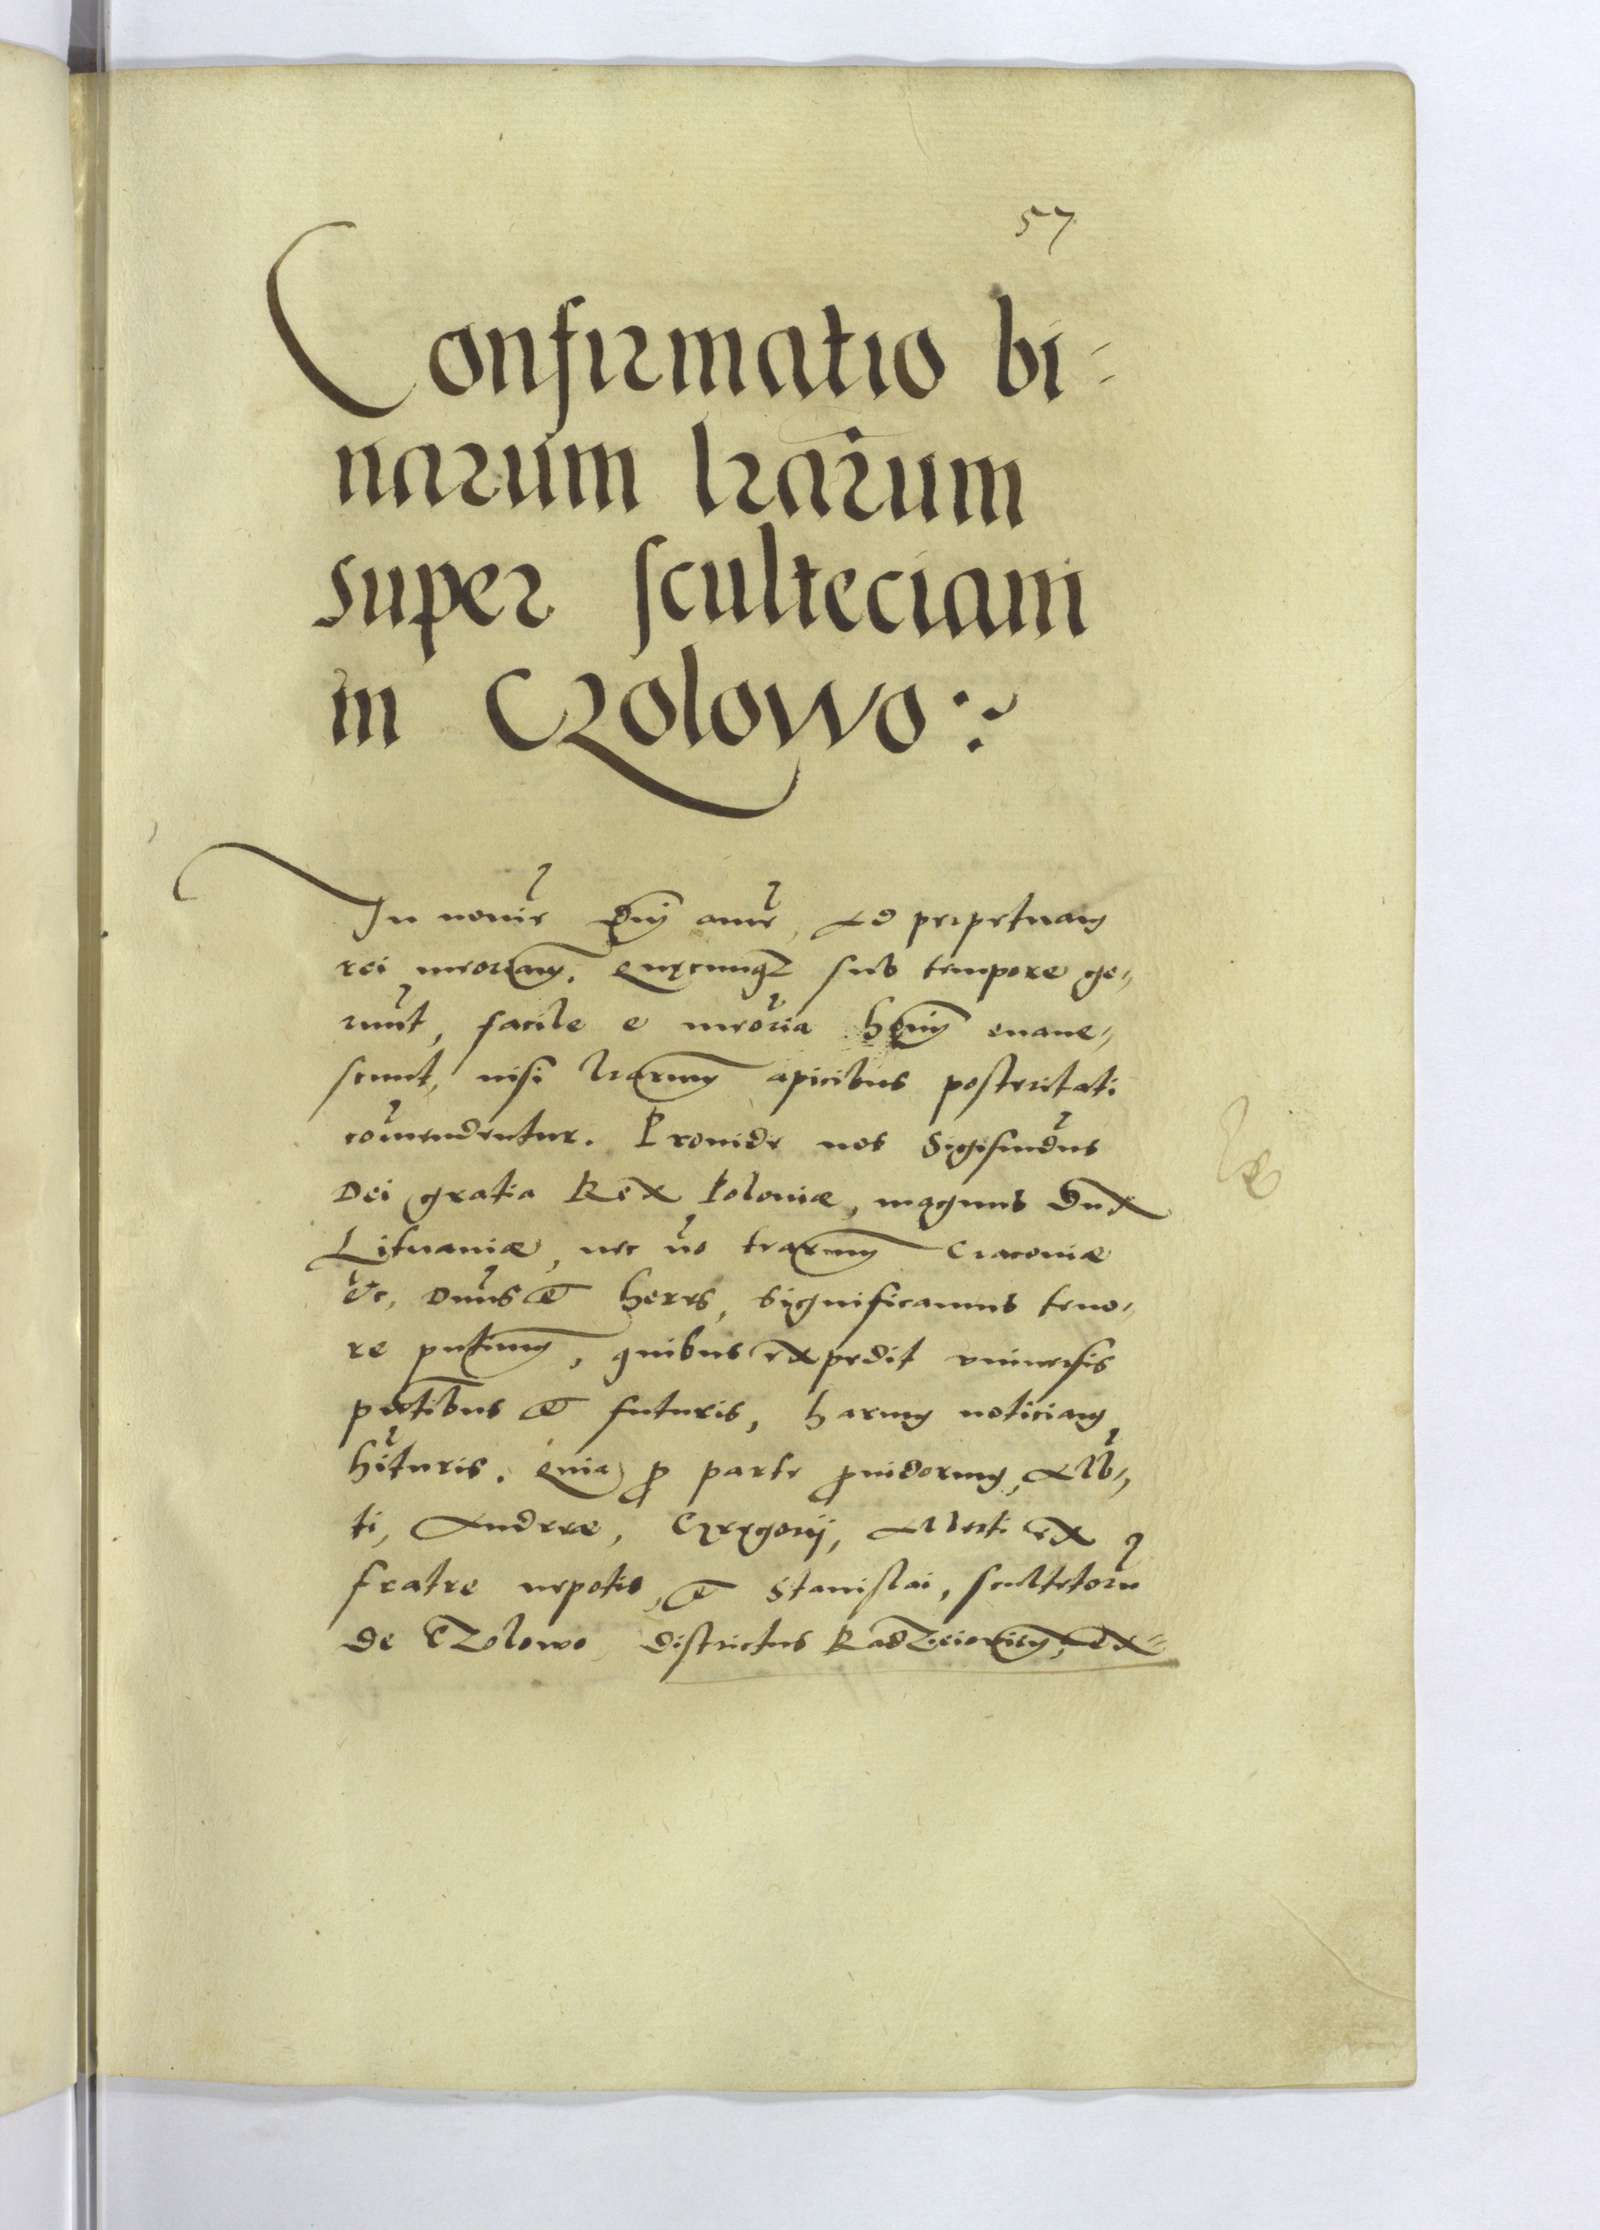 57
Confirmatio bi-
narum lrarum
super sculteciam
in Czolowo
In nomie Dni ame, Ad perpetuam
rei meoriam. Quęcunqz sub tempore ge-
runt, facile e meoria hoim euane-
scunt, nisi lrarum apicibus posteritati
comendentur. Proinde nos Sigismdus
Dei gratia Rex Poloniæ, magnus Dux
Lituaniæ, nec no trarum Cracoviæ
&c, Dnus et heres, Significamus teno-
re pntium, quibus expedit vniuersis
pntibus et futuris, harum noticiam
hituris. Quia p parte puidorum, Alb-
ti, Andree, Gręgorij, Alberti ex
fratre nepotis, et Stanislai, scultetoru
de Czolowo, districtus Radzieiovien, ex-